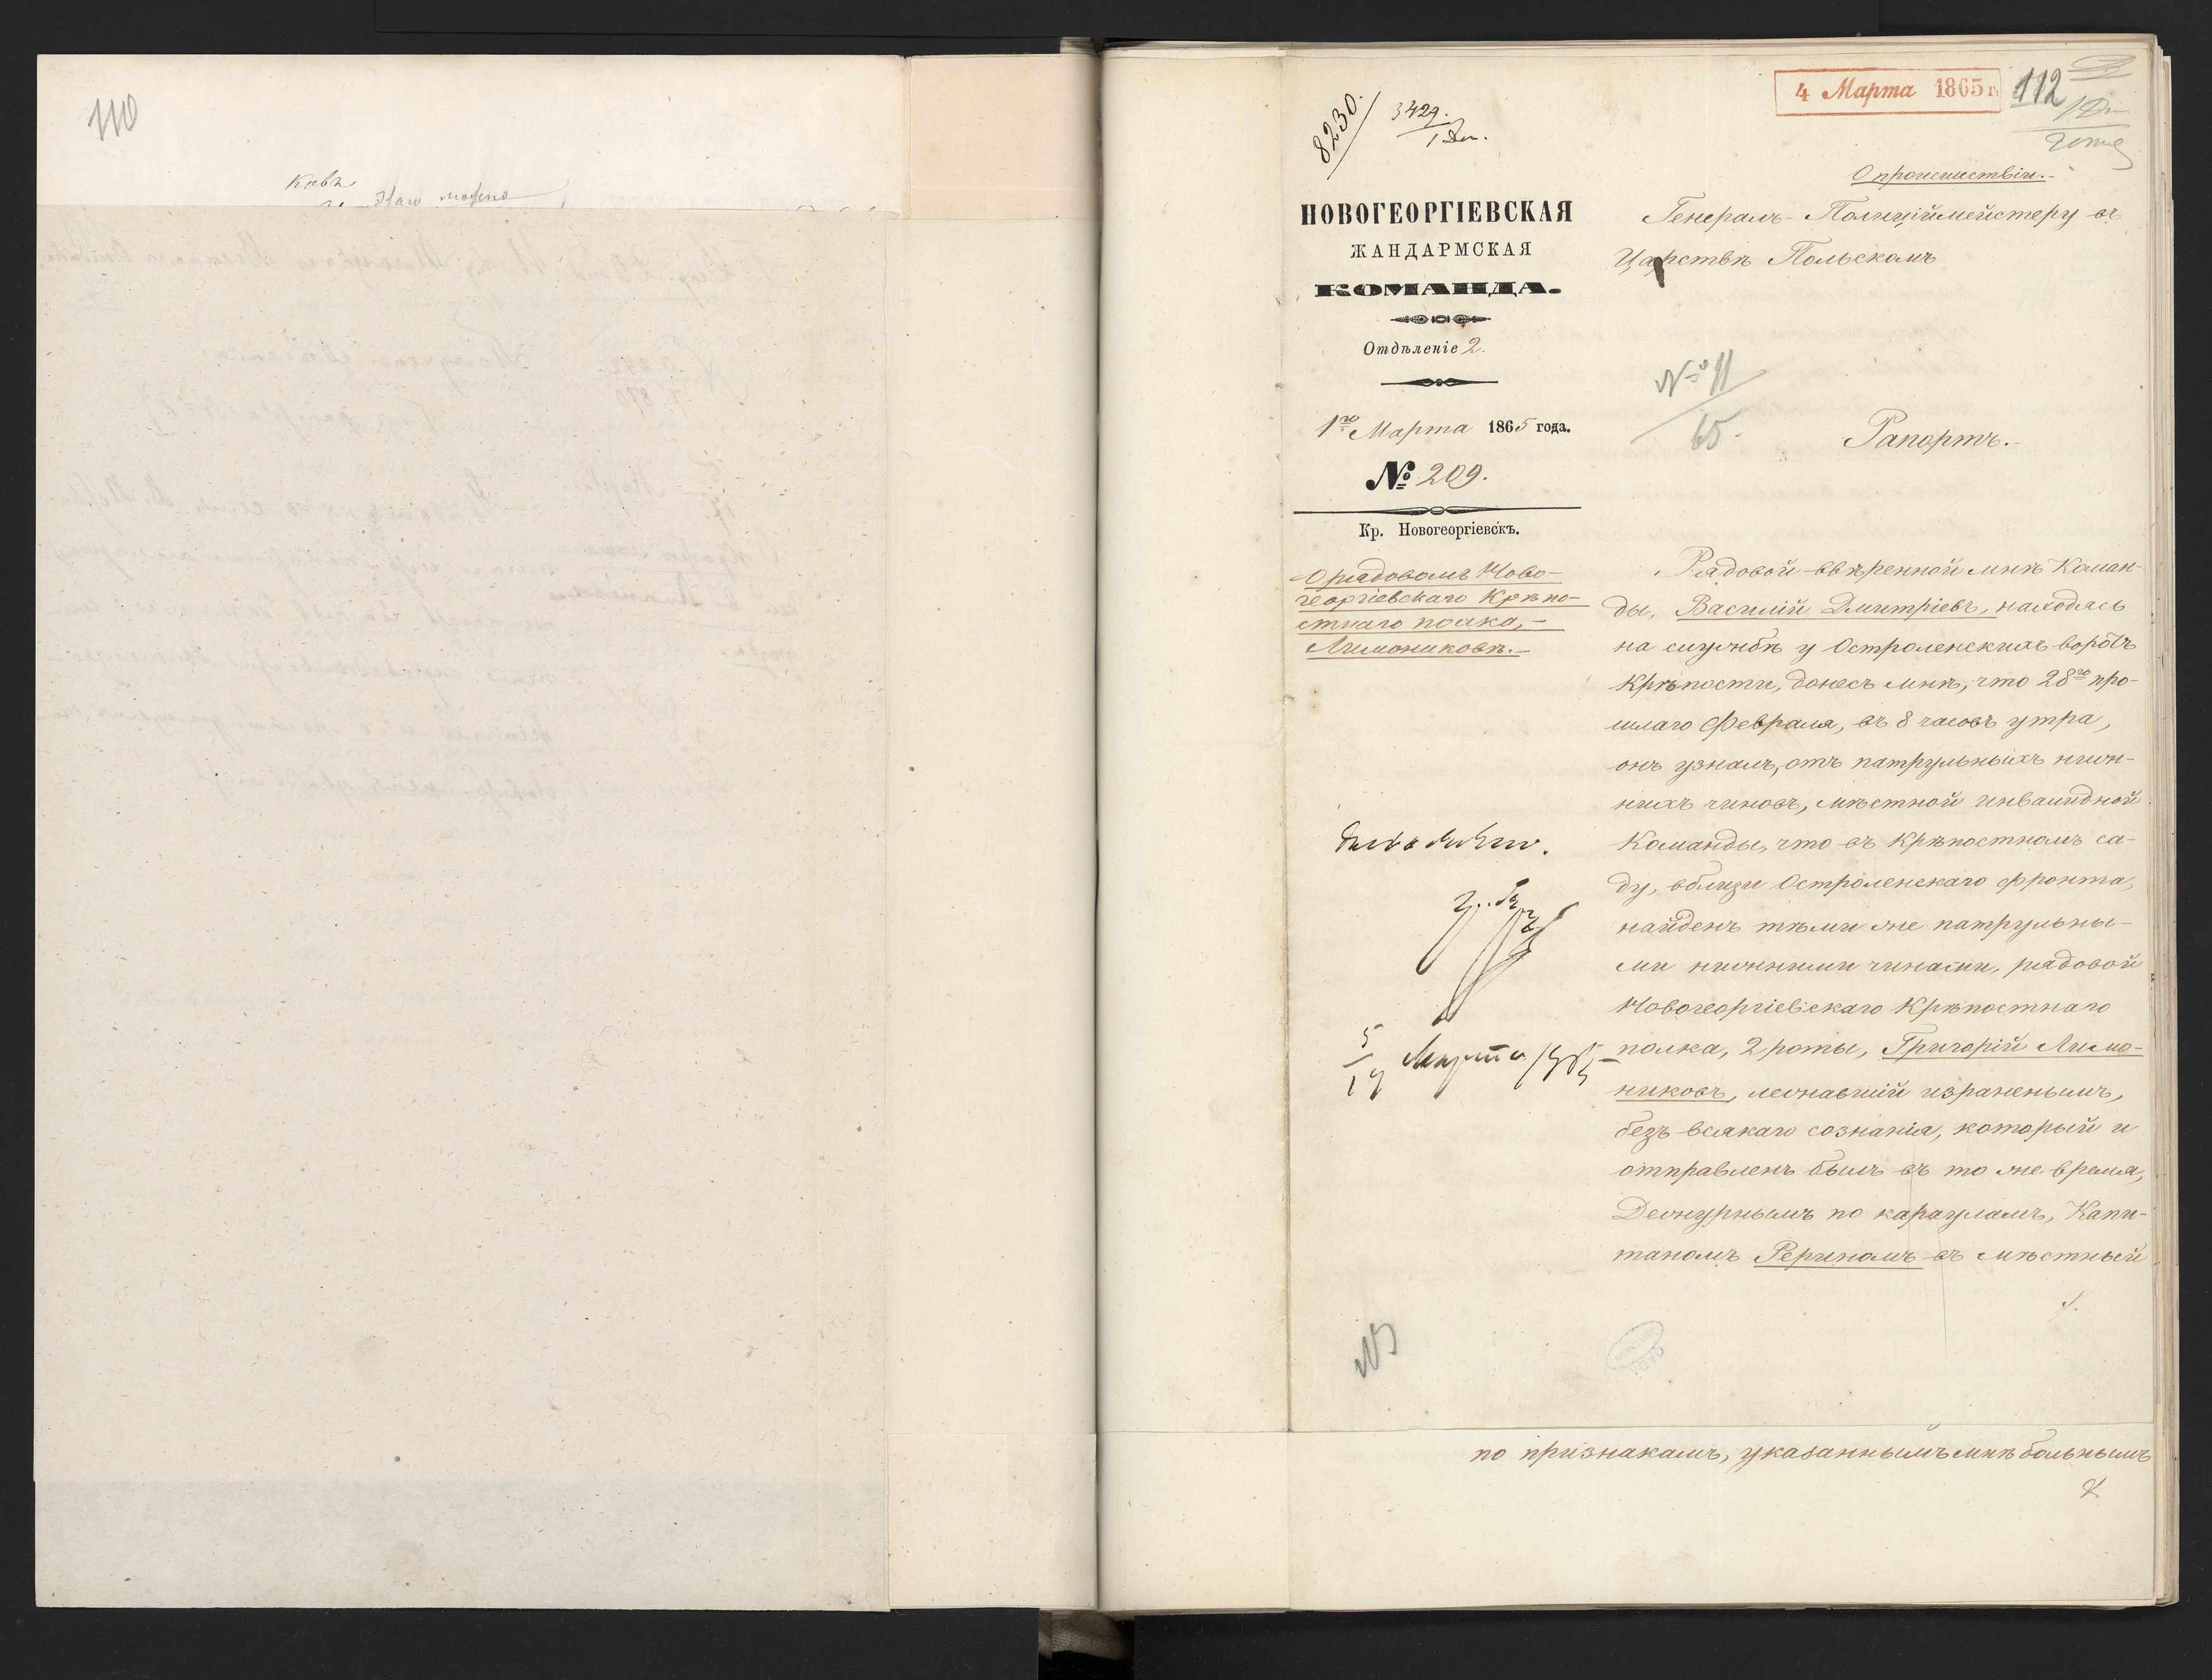 110
4 Марта 1865 г.
112
8230.
3429.
1 Дѣл.
О происшествіи.-
НОВОГЕОРГІЕВСКАЯ
ЖАНДАРМСКАЯ
КОМАНДА.
Отдѣленіе 2.
1го Марта 1865 года.
№ 209.
Кр. Новогеоргіевскъ.
О рядовомъ Ново-
георгіевскаго Крѣпо-
стнаго полка,-
Лимониковѣ.-
5/17 Марта 1865
Генералъ-Полиціймейстеру въ
Царствѣ Польскомъ
№ 11
65.
Рапортъ.-
Рядовой ввѣренной мнѣ Коман-
ды, Василій Дмитріевъ, находясь
на службѣ у Остроленскихъ воротъ
Крѣпости, донесъ мнѣ, что 28го про-
шлаго Февраля, въ 8 часовъ утра,
онъ узналъ, отъ патрульныхъ ниж-
нихъ чиновъ, мѣстной инвалидной
Команды, что въ Крѣпостномъ са-
ду, вблизи Остроленскаго фронта,
найденъ тѣми же патрульны-
ми нижними чинами, рядовой
Новогеоргіевскаго Крѣпостнаго
полка, 2 роты, Григорій Лимо-
никовъ, лежавшій израненымъ,
безъ всякаго сознанія, который и
отправленъ былъ въ то же время,
Дежурнымъ по карауламъ, Капи-
таномъ Рериномъ въ мѣстный
по признакамъ, указаннымъ мнѣ больнымъ